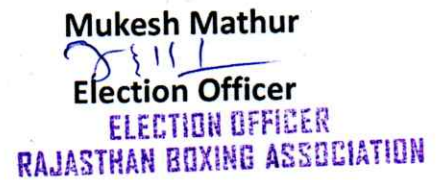 Mukesh Mathur
Election Officer
ELECTION OFFICER
RAJASTHAN BOXING ASSOCIATION